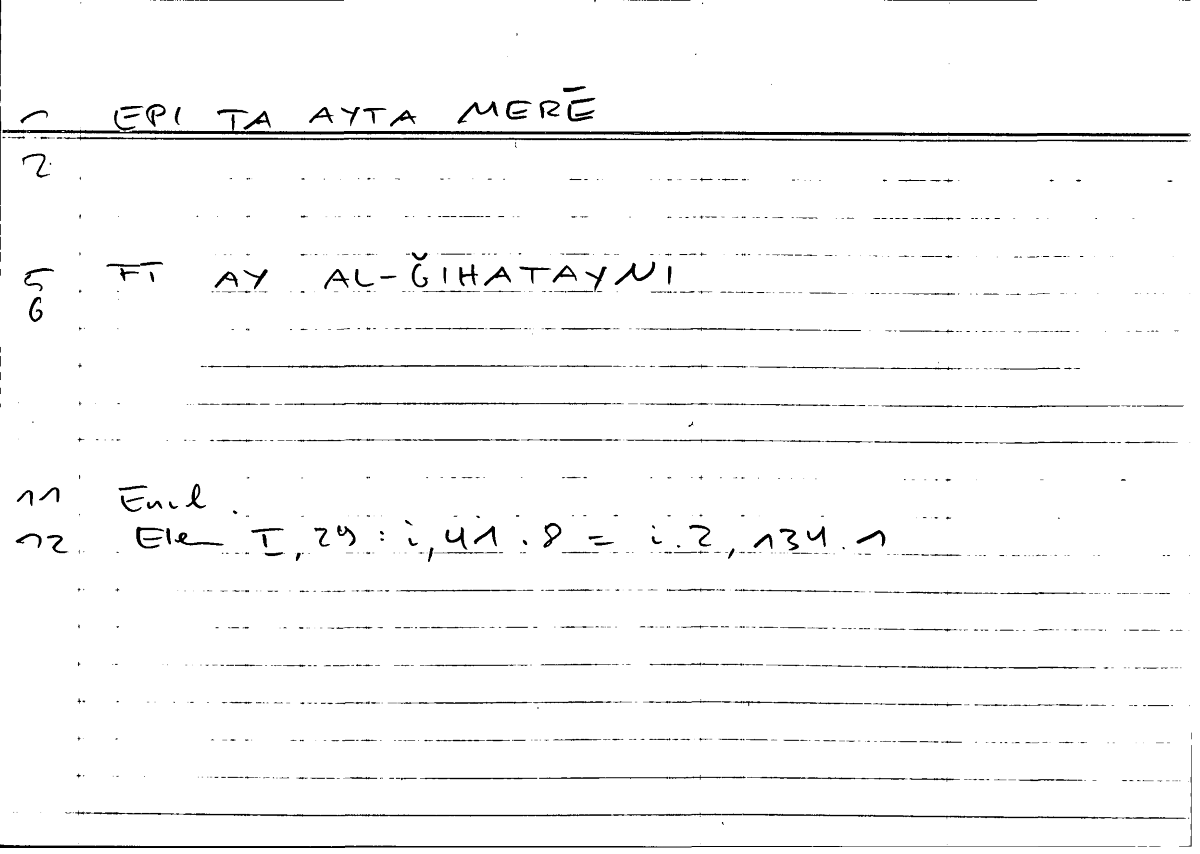 1 EPI TA AYTA MERĒ
2
5 FĪ AY AL-ǦIHATAYNI
6
11 Eucl.
12 Elem I, 29 : i, 41.8 = i.2, 134.1